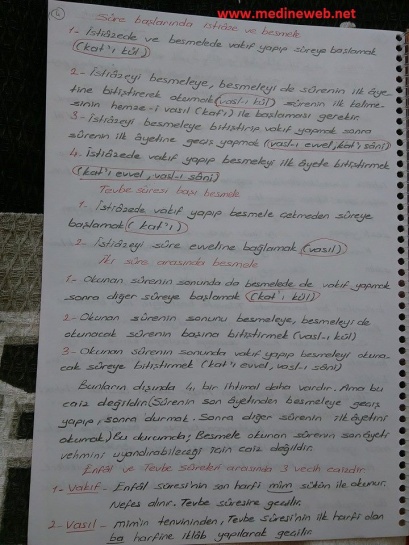 www.medineweb.net
4
Sûre başlarında istiâze ve besmele
1- İstiâzede ve besmelede vakıf yapıp sûreye başlamak
(kat'ı kül)
2.- İstiâzeyi besmeleye, besmeleyi de sûrenin ilk âye-
tine bitiştirerek okumak (vasl-ı kül) sûrenin ilk kelime-
sinin hemze-i vasıl (kat'ı) ile başlaması gerekir.
3- İstiâzeyi besmeleye bitiştirip vakıf yapmak sonra
sûrenin ilk âyetine geçiş yapmak (vasl-ı evvel, kat'ı sânî)
4. İstiâzede vakıf yapıp besmeleyi ilk âyete bitiştirmek
(kat'ı evvel, vasl-ı sânî)
Tevbe sûresi başı besmele
1- İstiâzede vakıf yapıp besmele çekmeden sûreye
başlamak (kat'ı)
2- İstiâzeyi sûre evveline bağlamak (vasıl)
İki sûre arasında besmele
1- Okunan sûrenin sonunda da besmelede de vakıf yapmak
sonra diğer sûreye başlamak (kat'ı kül)
2- Okunan sûrenin sonunu besmeleye, besmeleyi de
okunacak sûrenin başına bitiştirmek (vasl-ı kül)
3- Okunan sûrenin sonunda vakıf yapıp besmeleyi okuna-
cak sûreye bitiştirmek (kat'ı evvel, vasl-ı sânî)
Bunların dışında 4. bir ihtimal daha vardır. Ama bu
caiz değildir. (Sûrenin son âyetinden besmeleye geçiş
yapıp, sonra durmak. Sonra diğer sûrenin ilk âyetini
okumak) Bu durumda; Besmele okunan sûrenin son âyeti
vehmini uyandırabileceği için caiz değildir.
Enfâl ve Tevbe sûreleri arasında 3 vecih caizdir.
1- Vakıf - Enfâl sûresi'nin son harfi mim sükûn ile okunur.
Nefes alınır. Tevbe sûresine geçilir.
2- Vasıl - mim'in tenvininden, Tevbe Sûresi'nin ilk harfi olan
ba harfine iklâb yapılarak geçilir.